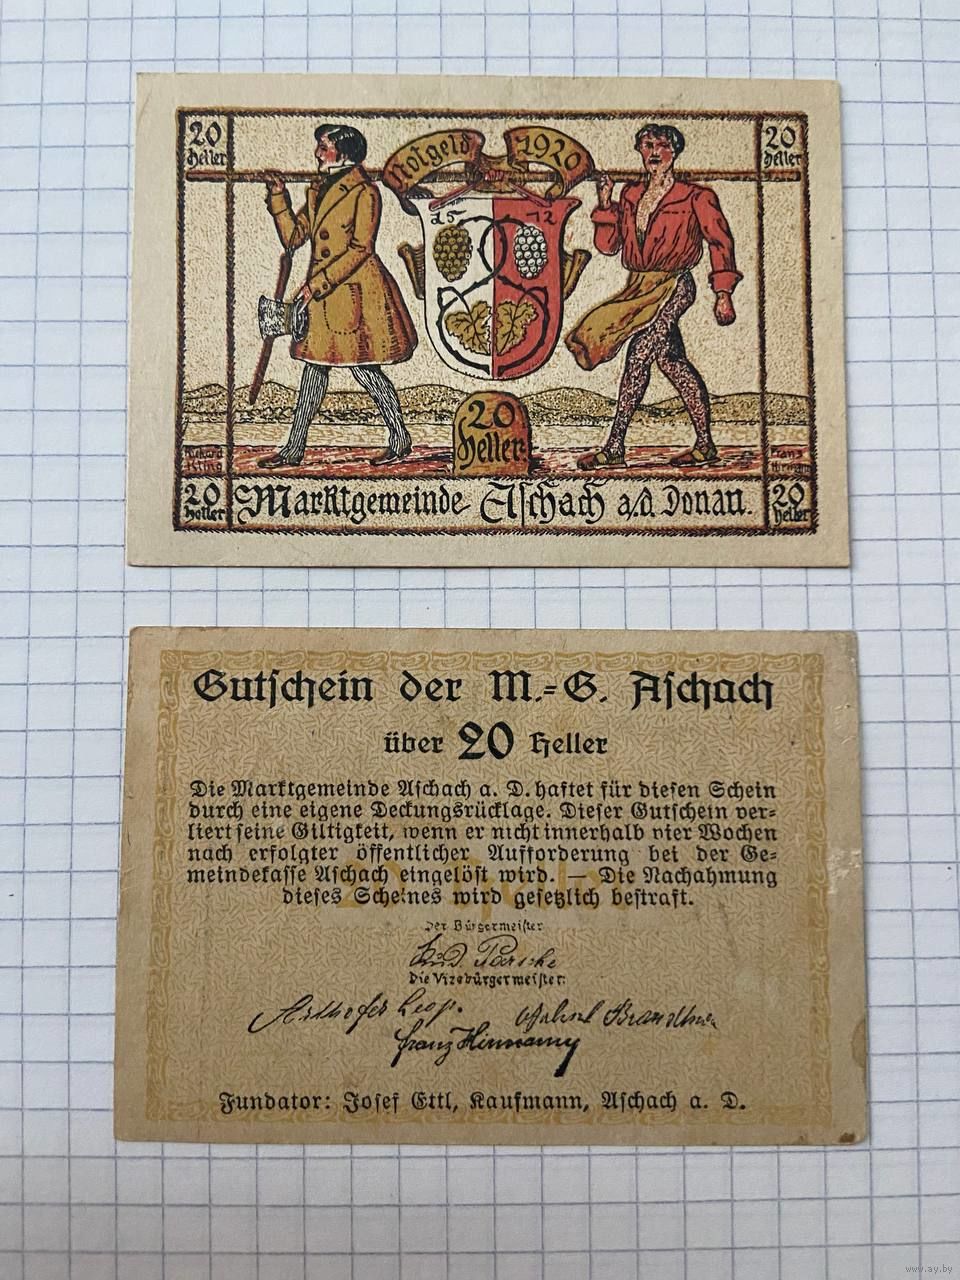 20 Heller
Notgeld 1920
20 Heller
15 72
20 Heller
Richard
Franz
20 Heller
Marktgemeinde Aschach a/d Donau.
20 Heller
Gutschein der M.=G. Aschach
über 20 Heller
Die Marktgemeinde Aschach a. D. haftet für diesen Schein
durch eine eigene Deckungsrücklage. Dieser Gutschein ver=
liert seine Giltigkeit, wenn er nicht innerhalb vier Wochen
nach erfolgter öffentlicher Aufforderung bei der Ge=
meindekasse Aschach eingelöst wird. — Die Nachahmung
dieses Scheines wird gesetzlich bestraft.
Der Bürgermeister
Die Vizebürgermeister:
Leop.
Franz
Fundator: Josef Ettl, Kaufmann, Aschach a. D.
www.ay.by